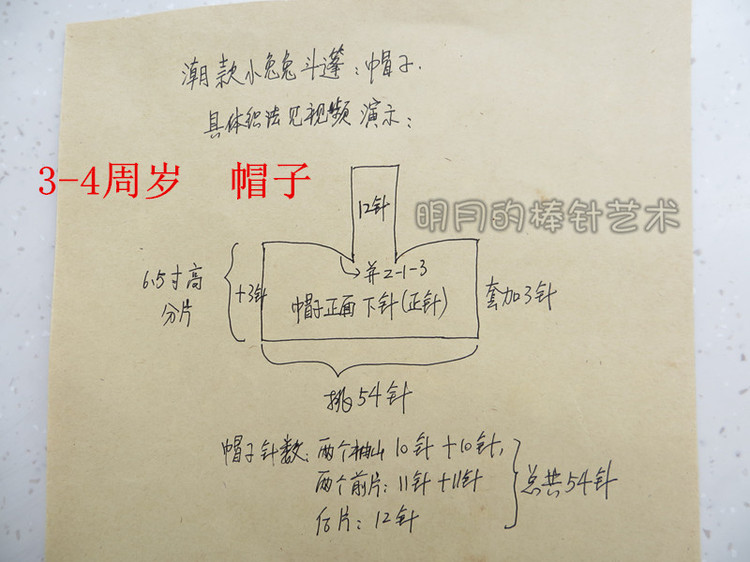 潮款小兔兔斗篷:帽子.
具体织法见视频演示:
3-4周岁 帽子
明月的棒针艺术
12针
6.5寸高
分片
+3针
并2-1-3
帽子正面下针(正针)
套加3针
挑54针
帽子针数:两个袖山10针+10针,
两个前片:11针+11针
后片:12针
总共54针